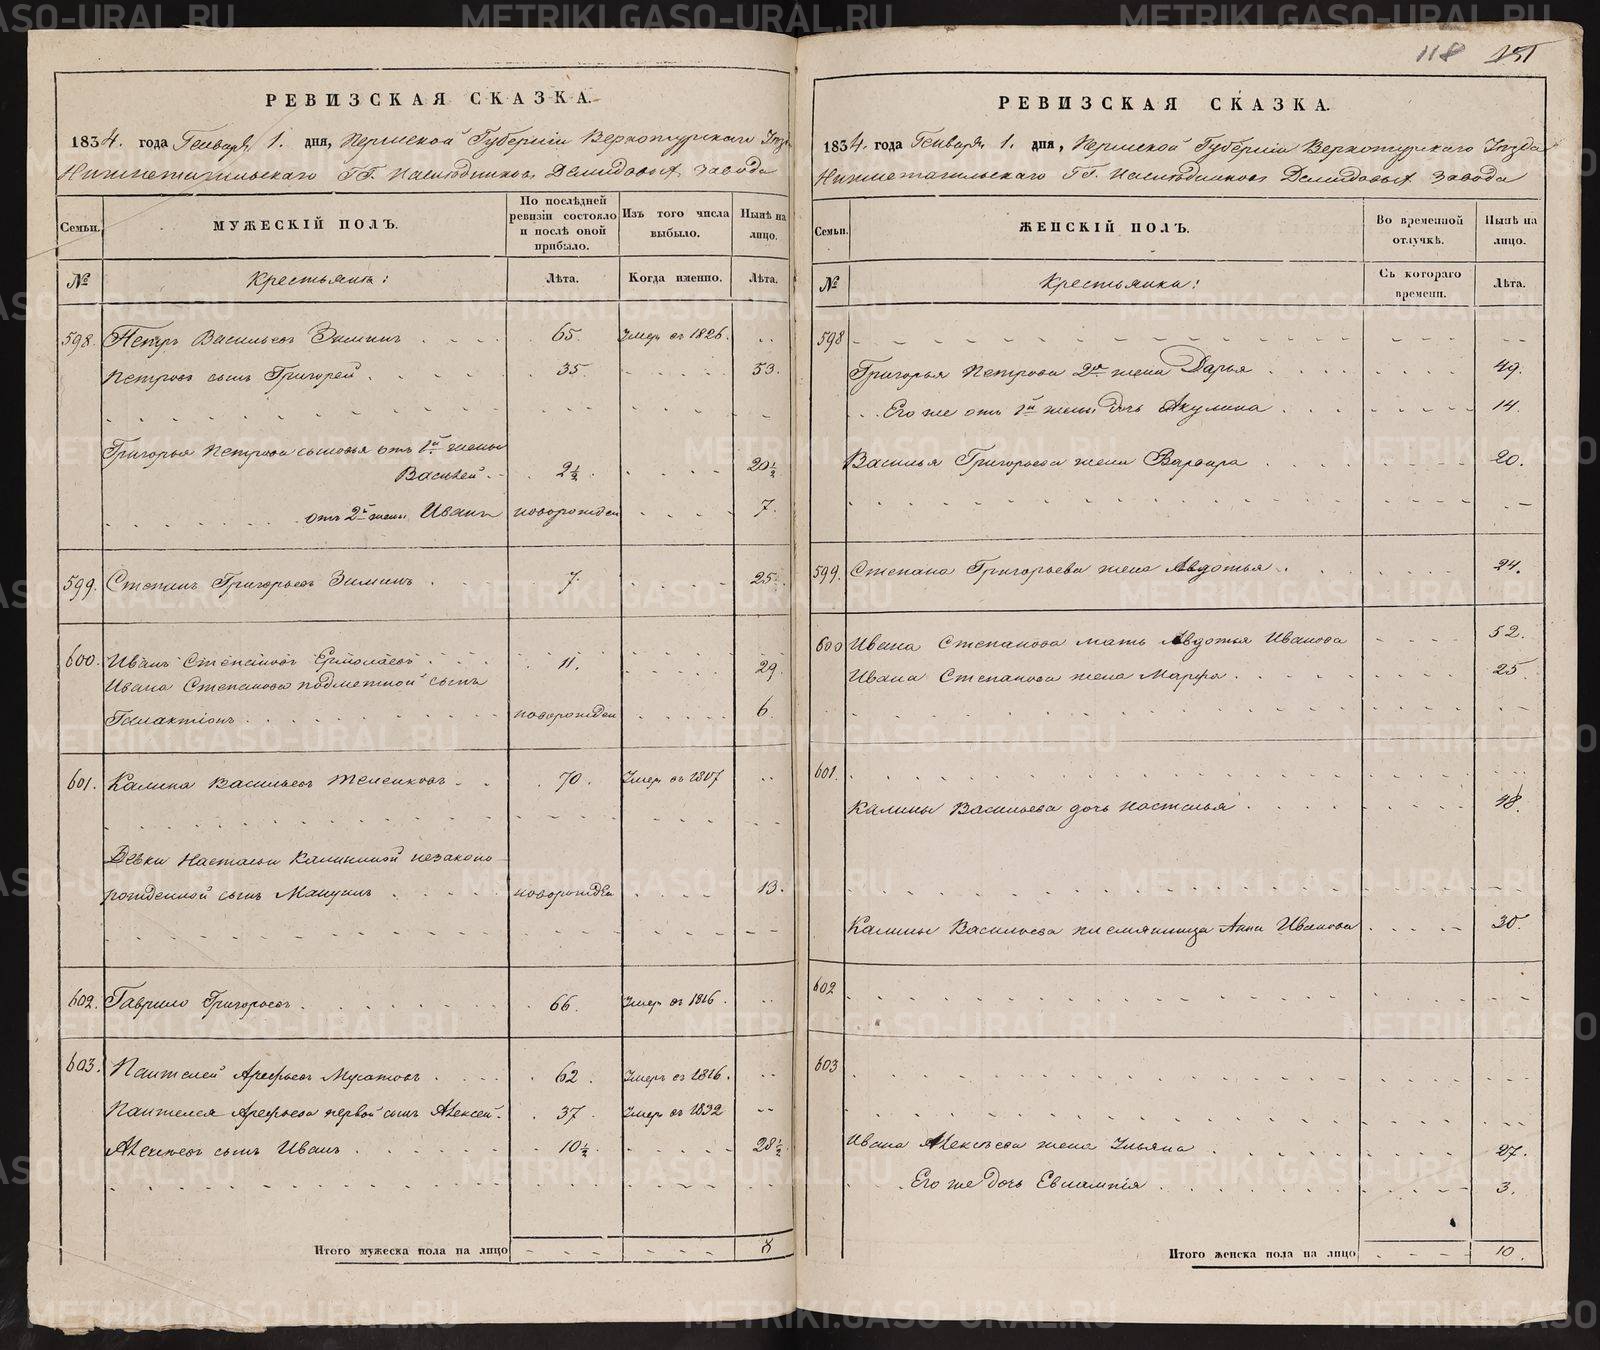 118 151
РЕВИЗСКАЯ СКАЗКА.
1834. года Генваря, 1. дня, Пермской Губерніи Верхотурскаго Уѣзда
Нижнетагильскаго ГГ. Наслѣдниковъ Демидовыхъ завода
Семьи.
МУЖЕСКІЙ ПОЛЪ.
По послѣдней ревизіи состояло и послѣ оной прибыло.
Изъ того числа выбыло.
Нынѣ на лицо.
№
Крестьянъ:
Лѣта.
Когда именно.
Лѣта.
598. Петръ Васильевъ Зиминъ 65. Умеръ въ 1826.
Петровъ сынъ Григорей 35 53.
Григорья Петрова сыновья отъ 1й жены
Василей 2½ 20½
отъ 2й жены Иванъ новорожден 7.
599. Степанъ Григорьевъ Зиминъ 7. 25.
600. Иванъ Степановъ Ермолаевъ 11. 29
Ивана Степанова подметной сынъ
Галактіонъ новорожден 6.
601. Калина Васильевъ 70. Умеръ въ 1817
Дѣвки Настасьи Калининой незаконо
рожденной сынъ новорожден 13.
602. Гаврило Григорьевъ 66. Умеръ въ 1816.
603. Пантелей Арефьевъ Мусатовъ 62. Умеръ въ 1816.
Пантелея Арефьева первой сынъ Алексей. 37. Умеръ въ 1832
Алексѣевъ сынъ Иванъ 10½ 28½
Итого мужеска пола на лицо 8
РЕВИЗСКАЯ СКАЗКА.
1834. года Генваря, 1. дня, Пермской Губерніи Верхотурскаго Уѣзда
Нижнетагильскаго ГГ. Наслѣдниковъ Демидовыхъ завода
Семьи.
ЖЕНСКІЙ ПОЛЪ.
Во временной отлучкѣ.
Нынѣ на лицо.
№
Крестьянка:
Съ котораго времени.
Лѣта.
598
Григорья Петрова 2я жена Дарья 49.
Его же отъ 1й жены дочь Акулина 14.
Василья Григорьева жена Варвара 20.
599. Степана Григорьева жена Авдотья. 24.
600 Ивана Степанова мать Авдотья Иванова 52.
Ивана Степанова жена Марфа 25
601.
Калины Васильева дочь Настасья 48.
Калины Васильева племянница Анна Иванова 30.
602
603
Ивана Алексѣева жена Ульяна 27.
Его же дочь Евлампія 3.
Итого женска пола на лицо 10.
METRIKI.GASO-URAL.RU